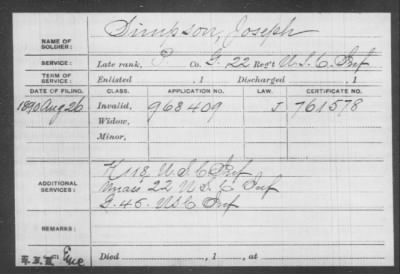 NAME OF SOLDIER: Simpson, Joseph
SERVICE: Late rank, P Co. G. 22 Reg't U.S.C. Inf
TERM OF SERVICE: Enlisted , 1 Discharged , 1
DATE OF FILING. CLASS. APPLICATION NO. LAW. CERTIFICATE NO.
1890 Aug 26 Invalid, 968409 J 761578
Widow,
Minor,
K 118 U.S.C Inf
ADDITIONAL SERVICES: Unass 22 U.S.C Inf
G. 45. U.S.C Inf
REMARKS:
Died , 1 , at